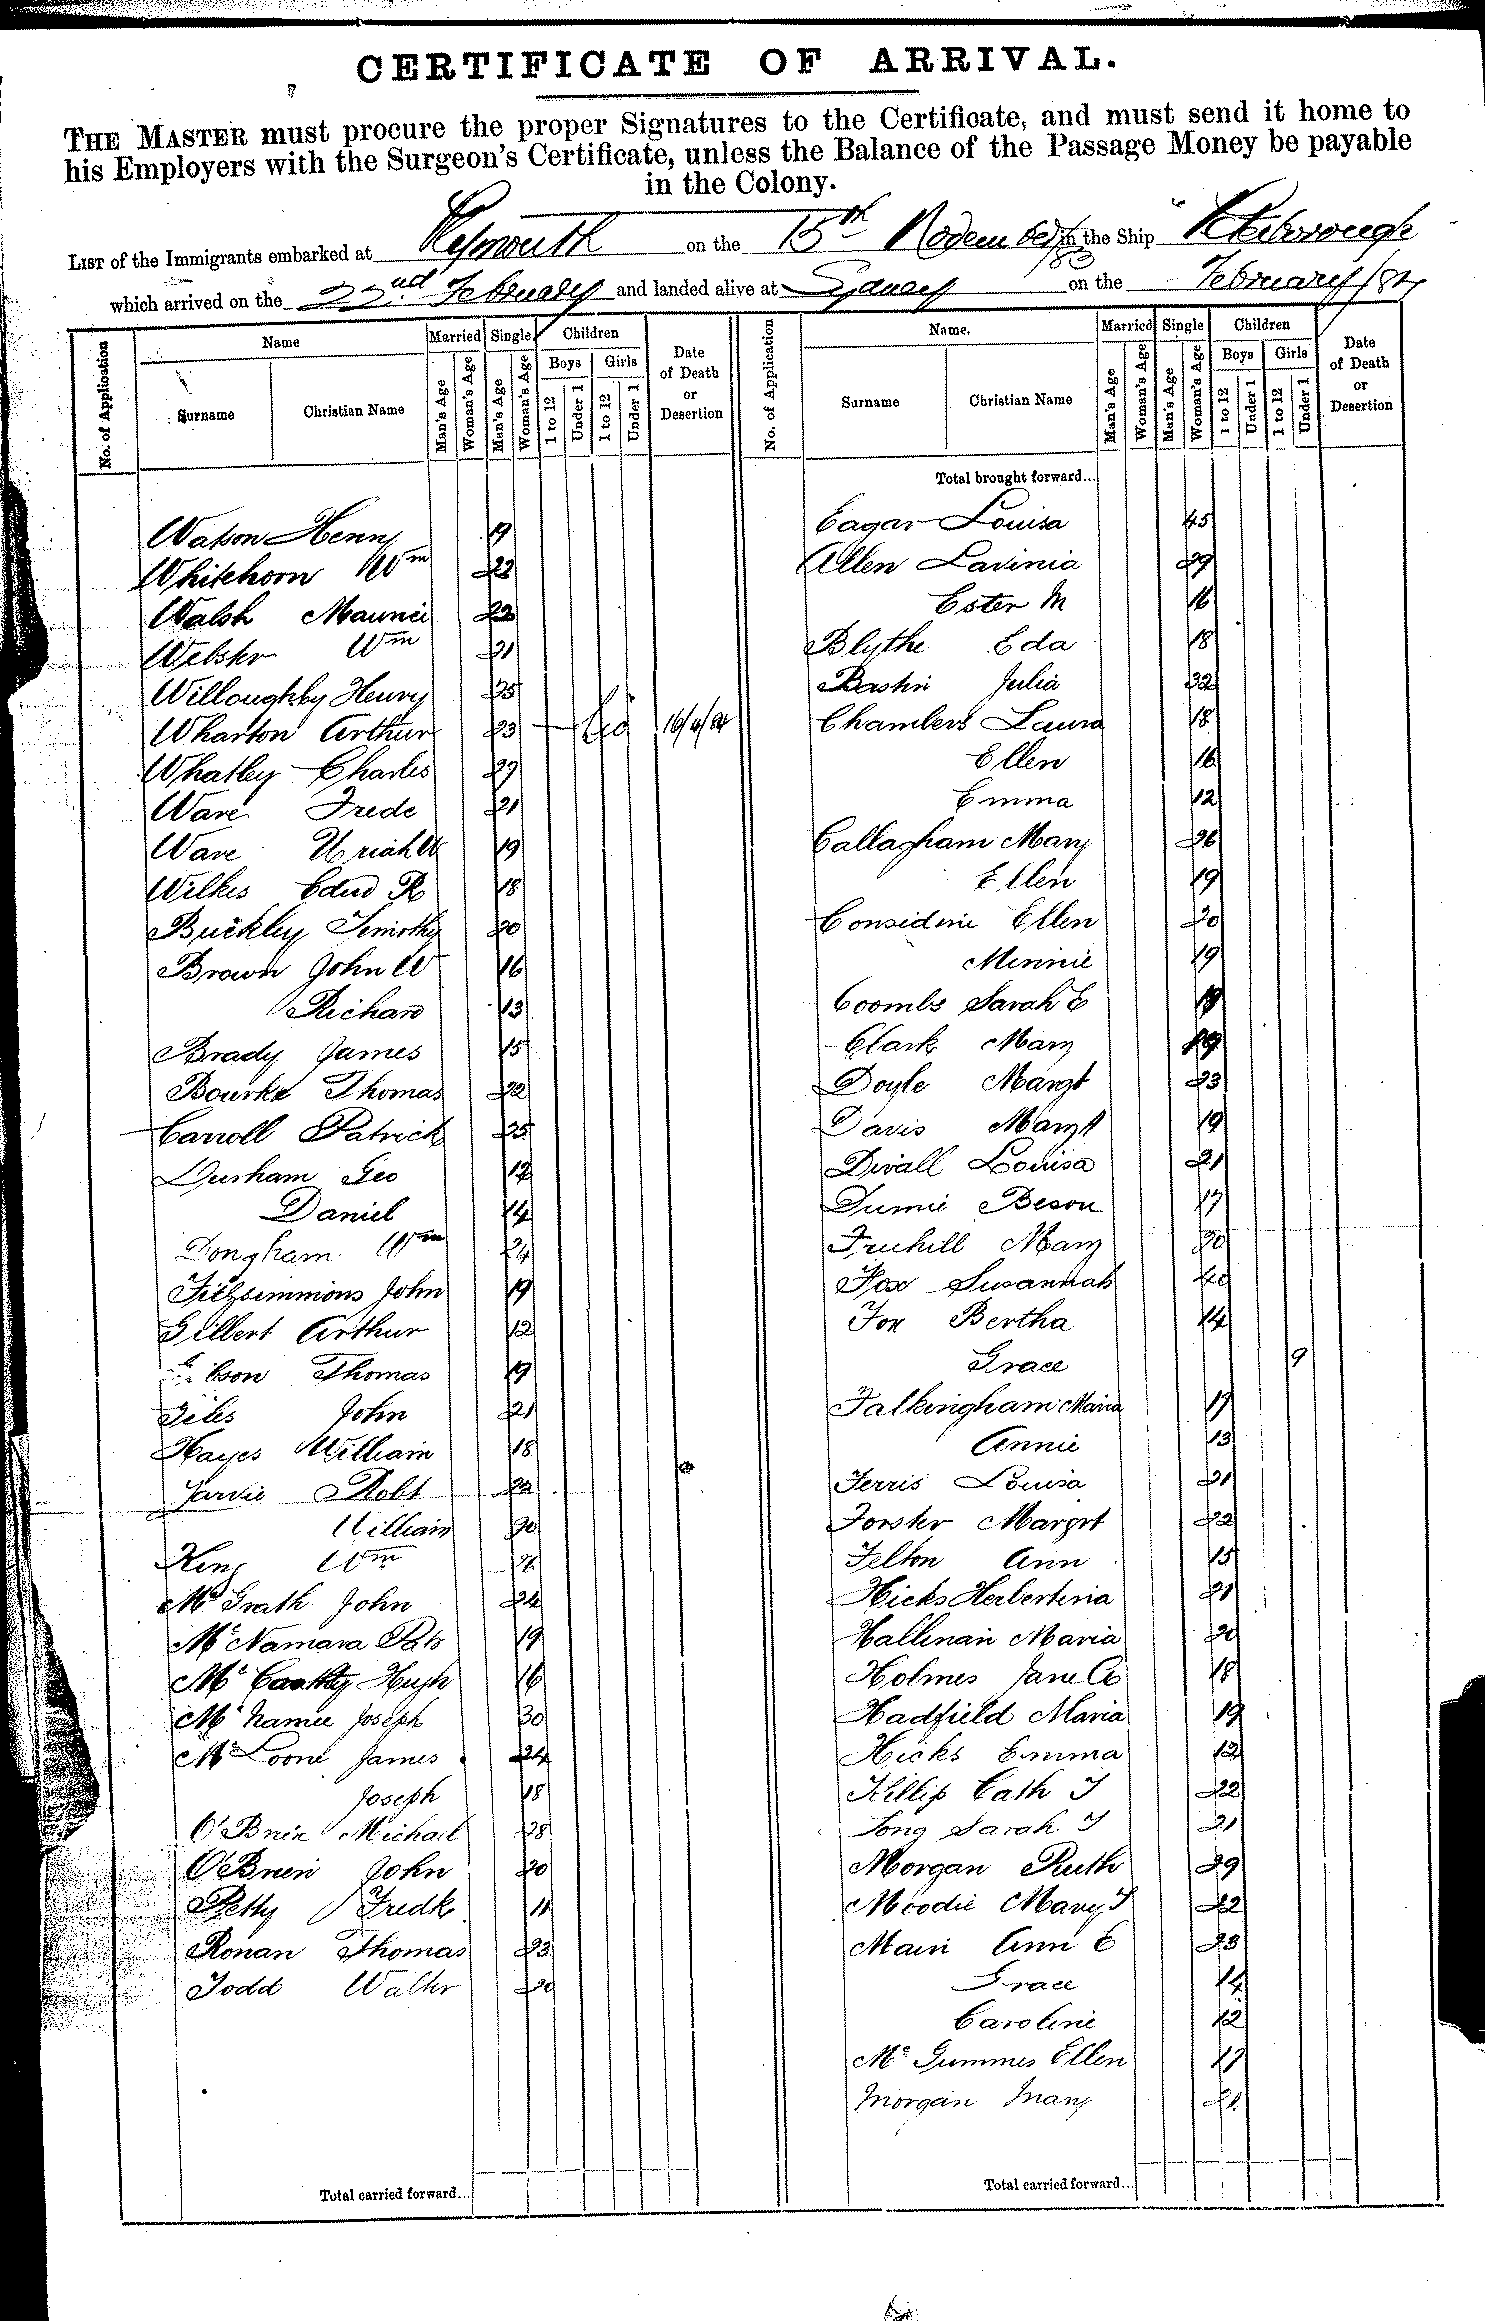 CERTIFICATE OF ARRIVAL.
THE MASTER must procure the proper Signatures to the Certificate, and must send it home to
his Employers with the Surgeon's Certificate, unless the Balance of the Passage Money be payable
in the Colony.
LIST of the Immigrants embarked at Plymouth on the 15th November /83 in the Ship
which arrived on the 22nd February and landed alive at Sydney on the February /84
No. of Application Name Married Single Children Date of Death or Desertion
Boys Girls
Surname Christian Name Man's Age Woman's Age Man's Age Woman's Age 1 to 12 Under 1 1 to 12 Under 1
Watson Henry 19
Whitehorn Wm 22
Walsh Maurice 22
Webster Wm 21
Willoughby Henry 25
Wharton Arthur 23 16/4/84
Whatley Charles 29
Ware Frede 21
Ware Uriah W 19
Wilkes Edwd R 18
Buckley Timothy 20
Brown John W 16
Richard 13
Brady James 15
Bourke Thomas 22
Carroll Patrick 25
Durham Geo 17
Daniel 14
Dongham Wm 24
Fitzsimmions John 19
Gilbert Arthur 12
Thomas 19
Giles John 21
Hayes William 18
Jarvie Robt 22
William 20
King Wm
McGrath John 24
McNamara Pat 19
Mc Hugh 16
McNamee Joseph 30
McLoone James 24
Joseph 18
O'Brien Michael 28
O'Brien John 20
Petty Fredk 11
Ronan Thomas 23
Todd Walter 20
Total carried forward...
No. of Application Name. Married Single Children Date of Death or Desertion
Boys Girls
Surname Christian Name Man's Age Woman's Age Man's Age Woman's Age 1 to 12 Under 1 1 to 12 Under 1
Total brought forward...
Eagar Louisa 45
Allen Lavinia 29
Ester M 16
Blythe Eda 18
Bastin Julia 32
Chambers Laura 18
Ellen 16
Emma 12
Callagham Mary 26
Ellen 19
Considine Ellen 20
Minnie 19
Coombs Sarah E 19
Clark Mary 19
Doyle Margt 23
Davis Margt 19
Divall Louisa 21
Beson 17
Mary 20
Fox Susannah 40
Fox Bertha 14
Grace 9
Falkingham Maria 17
Annie 13
Ferris Louisa 21
Forster Margrt 22
Felton Ann 15
Hicks Herbertina 21
Hallinan Maria 20
Holmes Jane C 18
Hadfield Maria 19
Hicks Emma 12
Killip Cath J 22
Long Sarah J 21
Morgan Ruth 29
Moodie Mary J 22
Main Ann E 23
Grace 14
Caroline 12
Mc Ellen 17
Morgan Mary 21
Total carried forward...